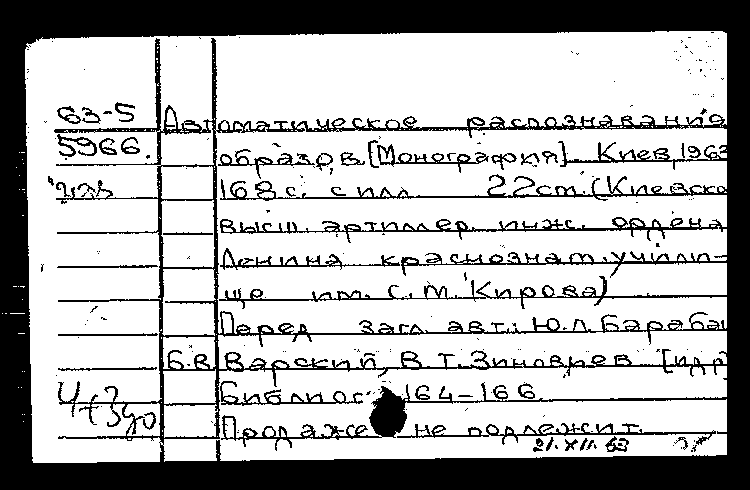 63-5 Автоматическое распознавание
5966. образов. [Монография]. Киев, 1963
168 с. с илл. 22 cm. (Киевско
высш. артиллер. инж. ордена
Ленина краснознам. учили-
ще им. С. М. Кирова)
Перед загл. авт.: Ю. Л. Бараба
Б.В. Варский, В. Т. Зиновьев [и др
Библиос 164-166.
Продаже не подлежит.
21.XII.63